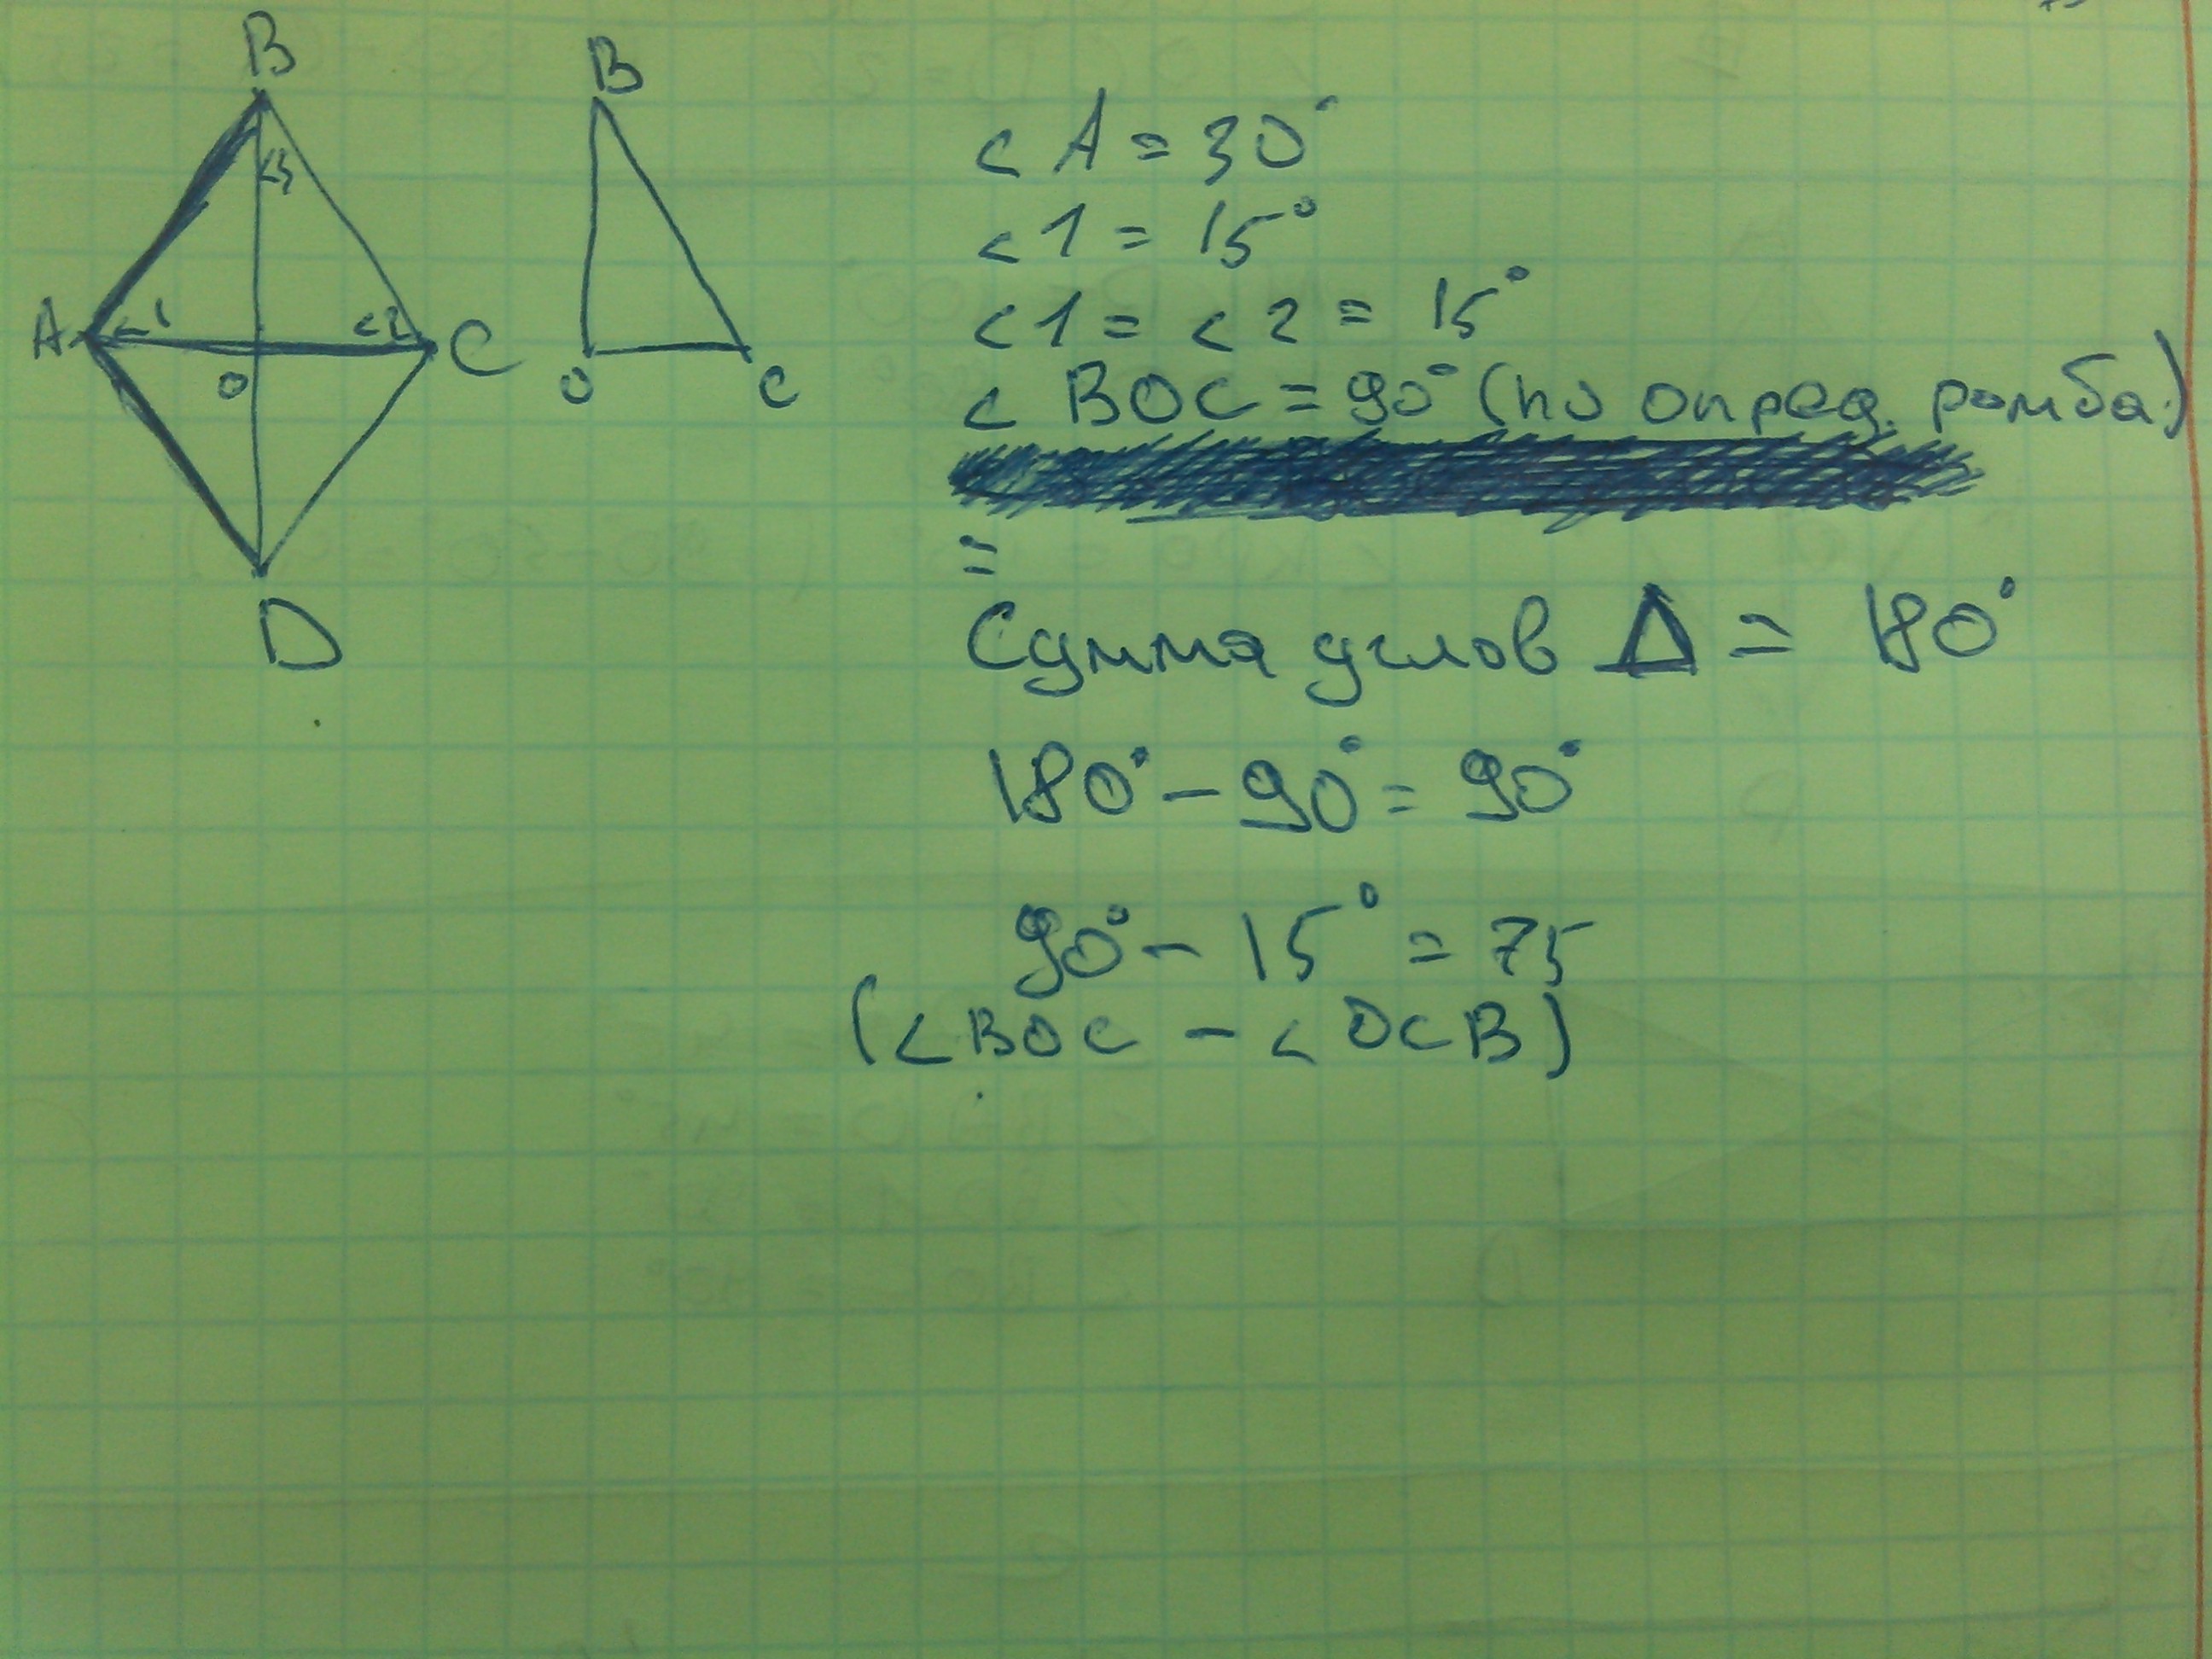 B
B
<3
A
<1
<2
C
O
O
C
D
< A = 30°
< 1 = 15°
< 1 = < 2 = 15°
< BOC = 90° (по опред. ромба)
=
Сумма углов Δ = 180°
180° - 90° = 90°
90° - 15° = 75
(< BOC - < OCB)